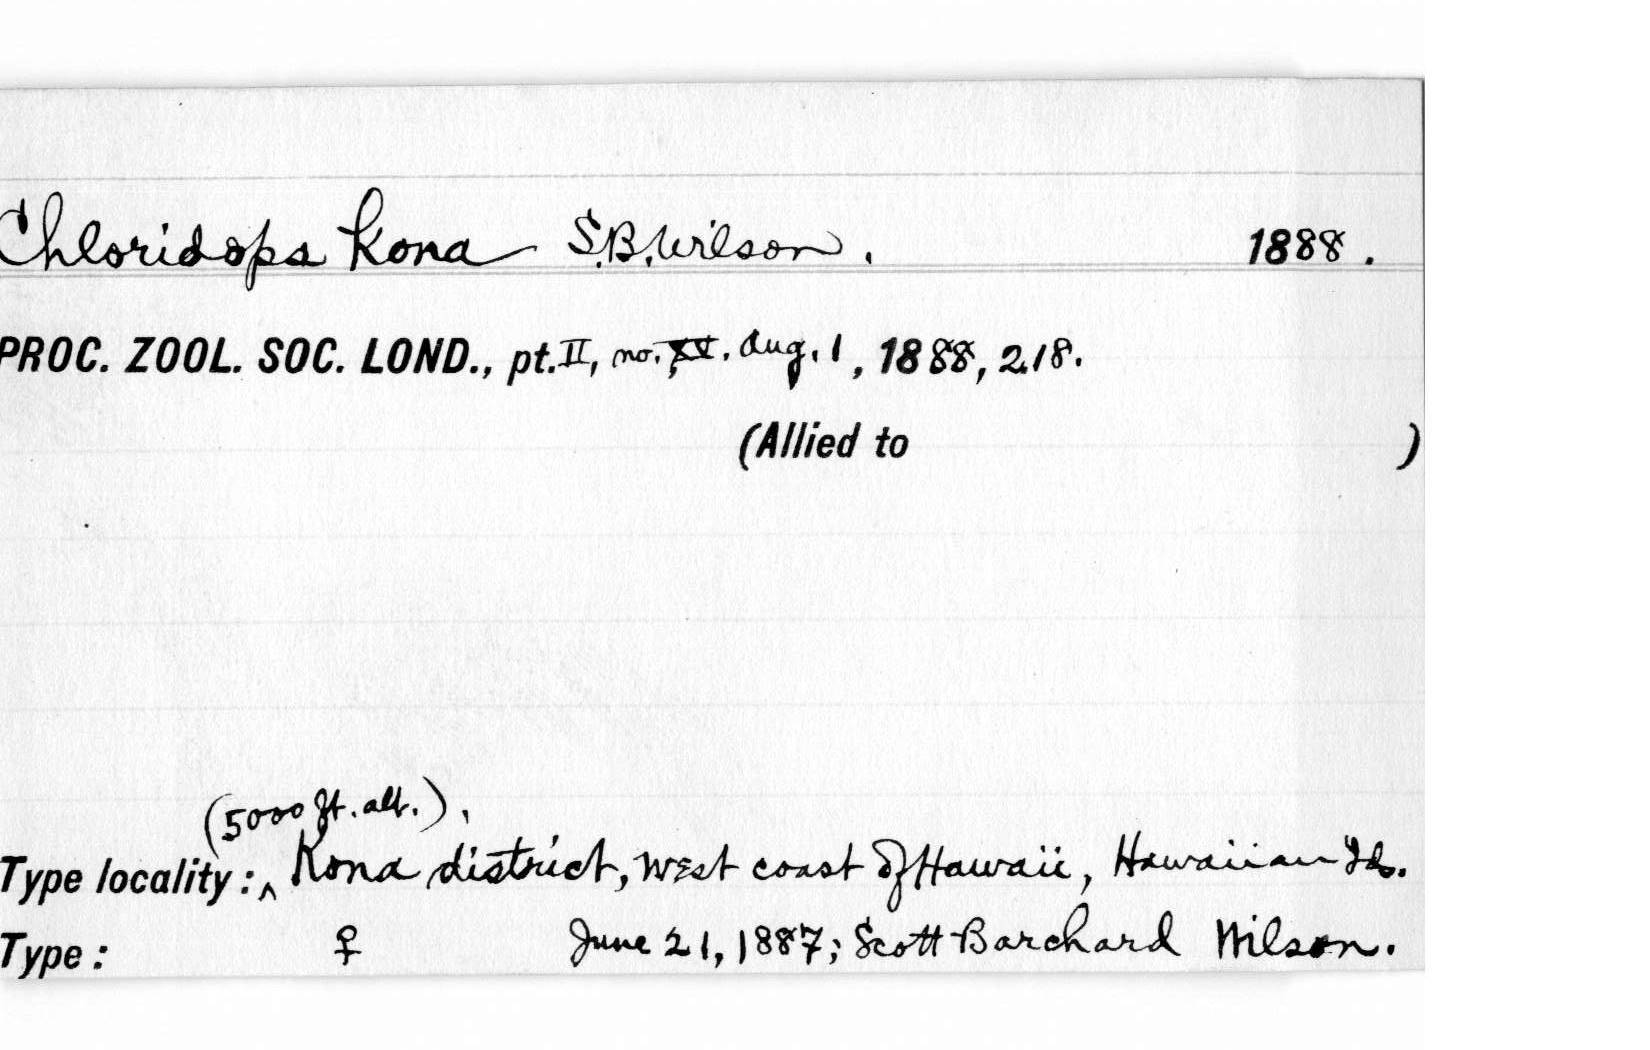 Chloridops kona S.B.Wilson. 1888.
PROC. ZOOL. SOC. LOND., pt. II, no. XV. Aug. 1, 1888, 218.
(Allied to )
(5000 ft. alt.),
Type locality: ^ Kona district, west coast of Hawaii, Hawaiian Ids.
Type: ♀ June 21, 1887; Scott Barchard Wilson.